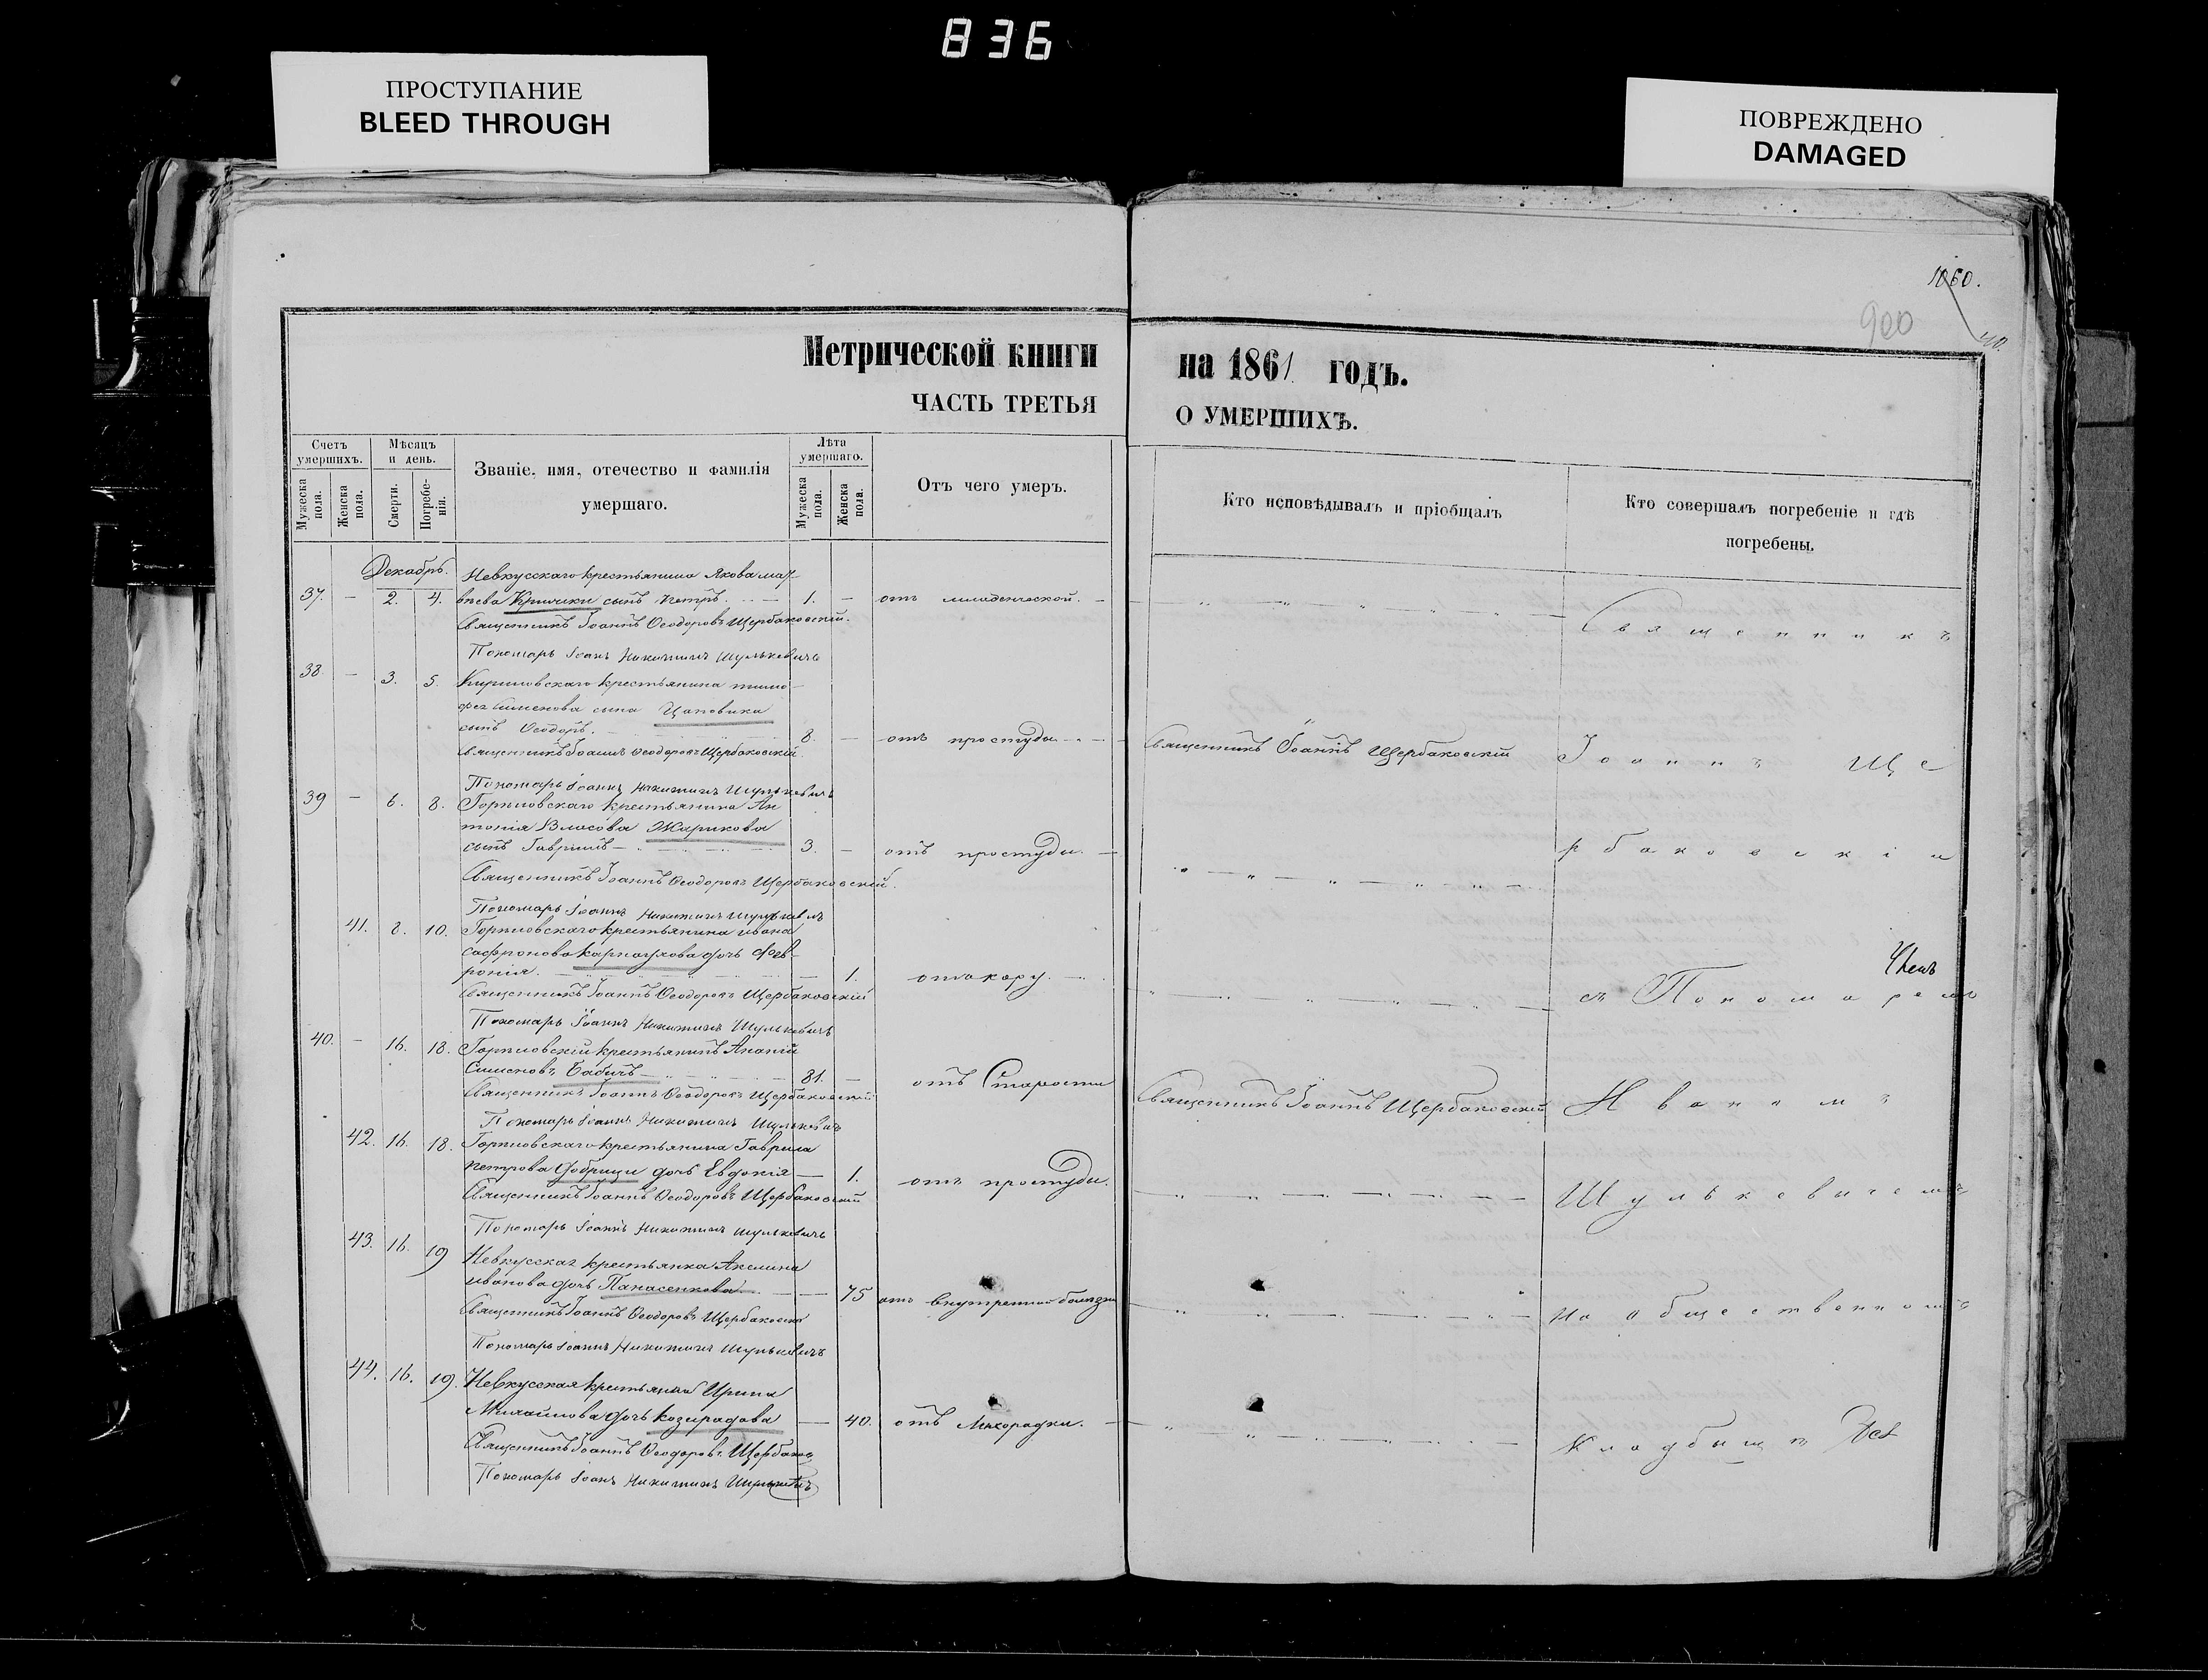 836
ПРОСТУПАНИЕ
BLEED THROUGH
ПОВРЕЖДЕНО
DAMAGED
1060.
900
Метрической книги на 1861 годъ.
ЧАСТЬ ТРЕТЬЯ О УМЕРШИХЪ.
Счетъ умершихъ.
Мужеска пола.
Женска пола.
Мѣсяцъ и день.
Смерти.
Погребенія.
Званіе, имя, отечество и фамилія умершаго.
Лѣта умершаго.
Мужеска пола.
Женска пола.
Отъ чего умеръ.
Кто исповѣдывалъ и пріобщалъ
Кто совершалъ погребеніе и гдѣ погребены.
Декабрь.
Невкусскаго крестьянина Якова Мат-
37. – 2. 4. вѣева сынъ Петръ. 1. – отъ младенческой.
Священникъ Іоаннъ Ѳеодоровъ Щербаковскій.
Священникъ
Пономарь Іоаннъ Никитинъ Шулькевичъ
38. – 3. 5. крестьянина Тимо-
фея Сименова сына Цаповика
сынъ Ѳеодоръ. 8. – отъ простуды. Священникъ Іоаннъ Щербаковскій
Священникъ Іоаннъ Ѳеодоровъ Щербаковскій.
Іоаннъ Ще
Пономарь Іоаннъ Никитинъ Шулькевичъ
39 – 6. 8. крестьянина Ан
тонія Власова Жарикова
сынъ Гавріилъ 3. – отъ простуды.
рбаковскій
Священникъ Іоаннъ Ѳеодоровъ Щербаковскій.
Пономарь Іоаннъ Никитинъ Шулькевичъ
41. 8. 10. крестьянина Ивана
Сафронова дочь Фев-
ронія. 1. отъ кору.
съ Пономаремъ
Священникъ Іоаннъ Ѳеодоровъ Щербаковскій
Пономарь Іоаннъ Никитинъ Шулькевичъ
40. – 16. 18. крестьянинъ Ананій
Сименовъ Бабичъ 81. – отъ Старости Священникъ Іоаннъ Щербаковскій
Иваномъ
Священникъ Іоаннъ Ѳеодоровъ Щербаковскій
Пономарь Іоаннъ Никитинъ Шулькевичъ
42. 16. 18. крестьянина Гаврила
Петрова дочь Евдокія 1. отъ простуды.
Шулькевичемъ
Священникъ Іоаннъ Ѳеодоровъ Щербаковскій
Пономарь Іоаннъ Никитинъ Шулькевичъ
43. 16. 19 Невкусская крестьянка Акелина
Иванова дочь Панасенкова. 75 отъ внутренней болѣзни
На общественномъ
Священникъ Іоаннъ Ѳеодоровъ
Пономарь Іоаннъ Никитинъ Шулькевичъ
44. 16. 19. Невкусская крестьянка Ирина
Михайлова дочь Козирадова 40. отъ Лихорадки.
Кладбищѣ
Священникъ Іоаннъ Ѳеодоровъ
Пономарь Іоаннъ Никитинъ Шулькевичъ